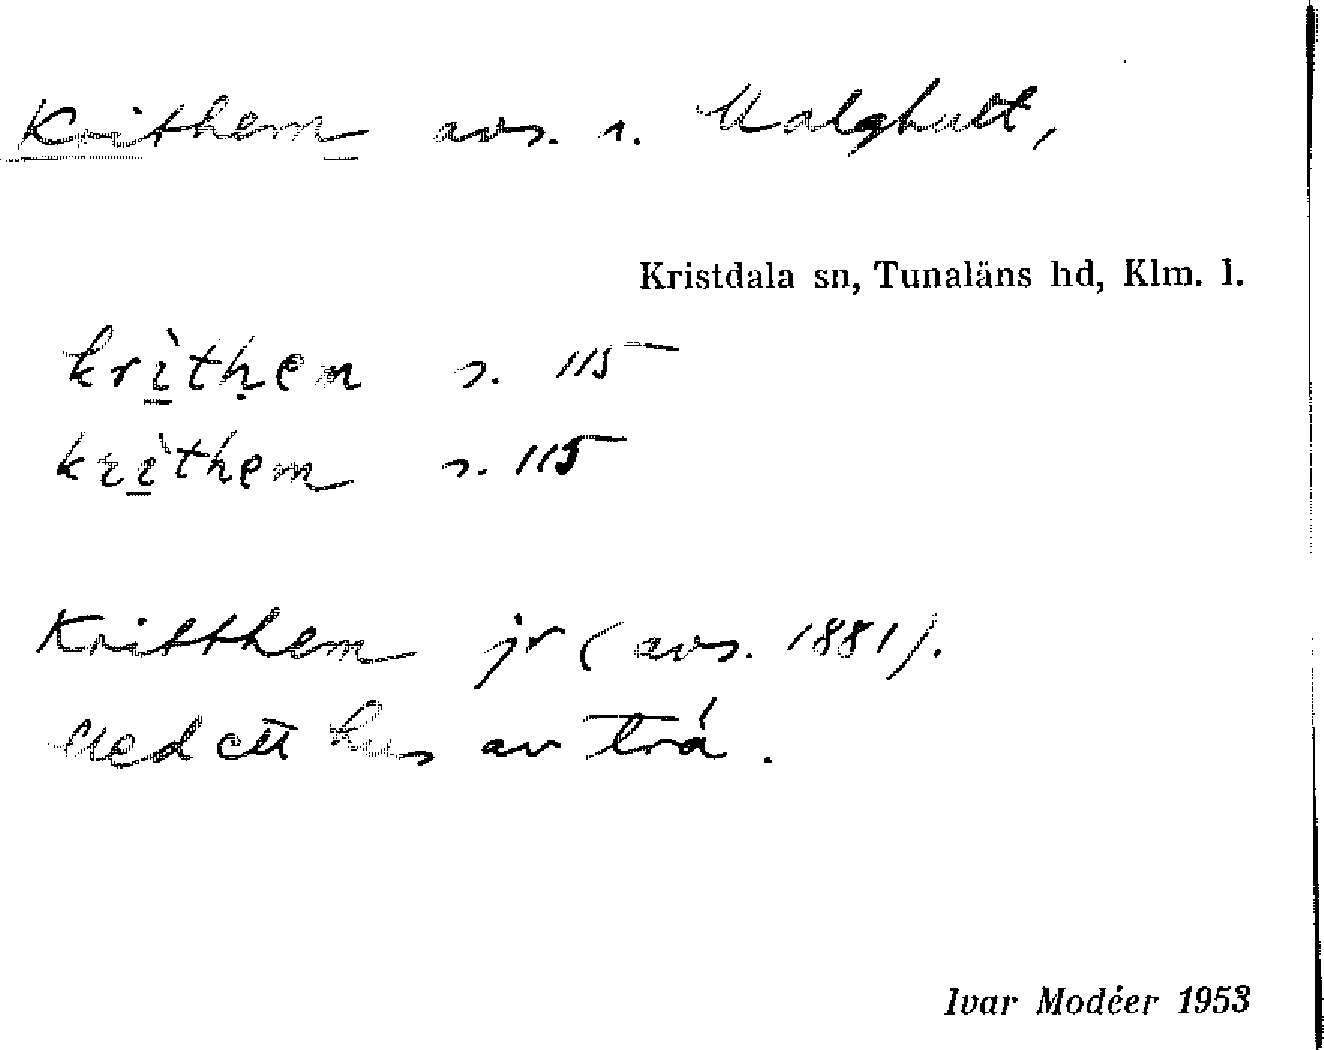 Krithem avs. s. Malghult,
Kristdala sn, Tunaläns hd, Klm. l.
krìtḥem s. 115
krìthem s. 115
Kritthem jr (avs. 1881).
Med ett hus av trä.
Ivar Modéer 1953